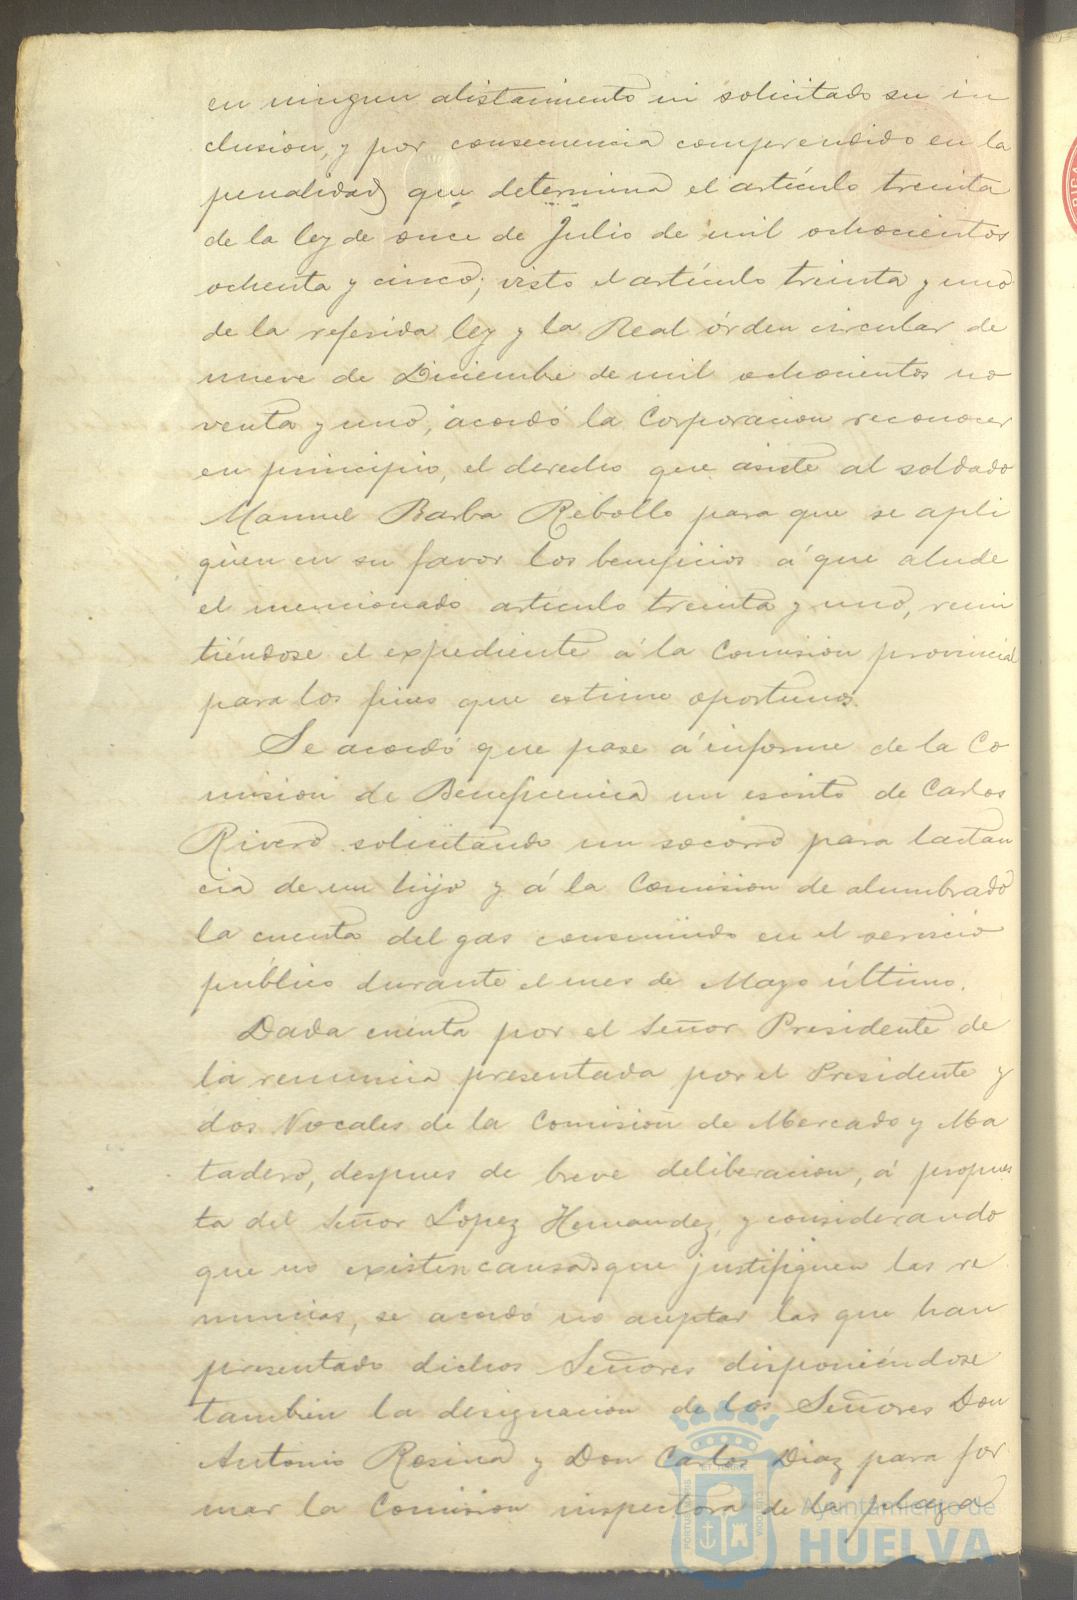 en ningun alistamiento ni solicitado su in
clusion, y por consecuencia comprendido en la
penalidad que determina el artículo treinta
de la ley de once de Julio de mil ochocientos
ochenta y cinco; visto el artículo treinta y uno
de la referida ley y la Real órden circular de
nueve de Diciembre de mil ochocientos no
venta y uno, acordó la Corporacion reconocer
en principio, el derecho que asiste al soldado
Manuel Barba Rebollo para que se apli
quen en su favor los beneficios á que alude
el mencionado articulo treinta y uno, remi
tiéndose el expediente á la Comision provincial
para los fines que estime oportunos.
Se acordó que pase á informe de la Co
mision de Beneficencia un escrito de Carlos
Rivero solicitando un socorro para lactan
cia de un hijo y á la Comision de alumbrado
la cuenta del gas consumido en el servicio
público durante el mes de Mayo último.
Dada cuenta por el Señor Presidente de
la renuncia presentada por el Presidente y
dos Vocales de la Comision de Mercado y Ma
tadero, despues de breve deliberacion, á propues
ta del Señor Lopez Hernandez, y considerando
que no existen causas que justifiquen las re
nuncias, se acordó no aceptar las que han
presentado dichos Señores disponiéndose
tambien la designacion de los Señores Don
Antonio Rosina y Don Carlos Diaz para for
mar la Comision inspectora de la plaza
Ayuntamiento de
HUELVA